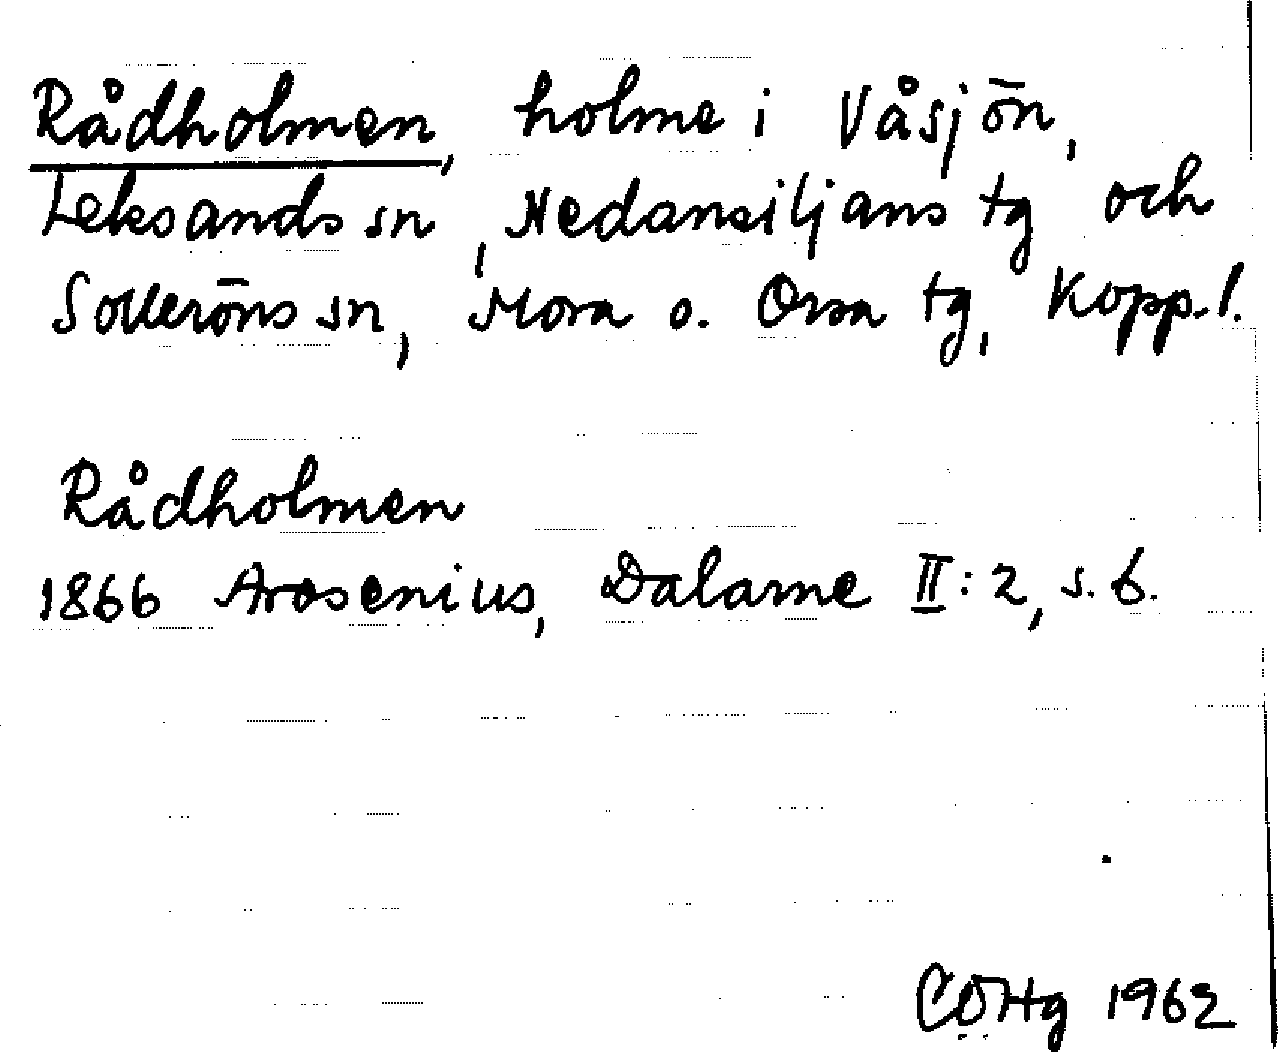 Rådholmen, holme i Våsjön,
Leksands sn, Nedansiljans tg och
Solleröns sn, Mora o. Orsa tg, Kopp. l.
Rådholmen
1866 Arosenius, Dalarne II:2, s. 6.
CÖHg 1962